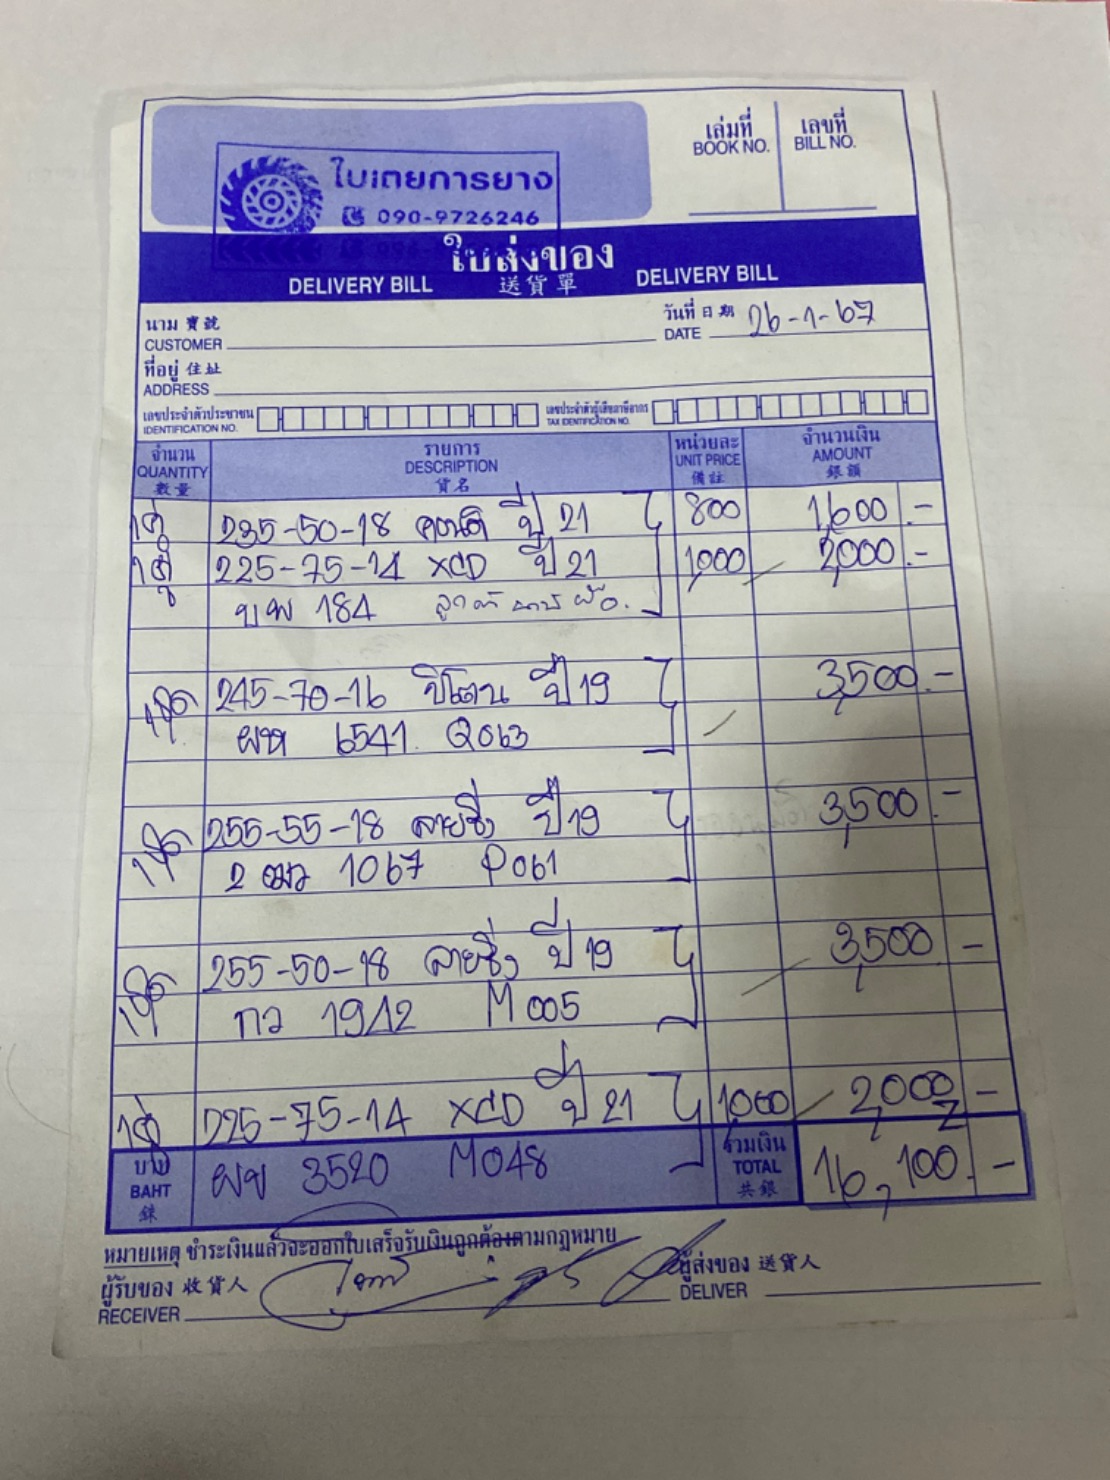 ใบเตยการยาง
090-9726246
เล่มที่ เลขที่
BOOK NO. BILL NO.
ใบส่งของ
DELIVERY BILL 送貨單 DELIVERY BILL
นาม 寶號 วันที่ 日期 26-1-67
CUSTOMER DATE
ที่อยู่ 住址
ADDRESS
เลขประจำตัวประชาชน เลขประจำตัวผู้เสียภาษีอากร
IDENTIFICATION NO. TAX IDENTIFICATION NO.
จำนวน รายการ หน่วยละ จำนวนเงิน
QUANTITY DESCRIPTION UNIT PRICE AMOUNT
數量 貨名 備註 銀額
1คู่ 235-50-18 คอนติ ปี 21 800 1,600.-
1คู่ 225-75-14 XCD ปี 21 1,000 2,000.-
บพ 184
245-70-16 ปี 19 3,500.-
ผห 6541 Q063
255-55-18 ลายซิ่ง ปี 19 3,500.-
2 ฒว 1067 P061
255-50-18 ลายซิ่ง ปี 19 3,500.-
กว 1942 M005
1คู่ 225-75-14 XCD ปี 21 1,000 2,000.-
บาท ผข 3520 M048 รวมเงิน 16,100.-
BAHT TOTAL
銖 共銀
หมายเหตุ ชำระเงินแล้วจะออกใบเสร็จรับเงินถูกต้องตามกฎหมาย
ผู้รับของ 收貨人 ผู้ส่งของ 送貨人
RECEIVER DELIVER